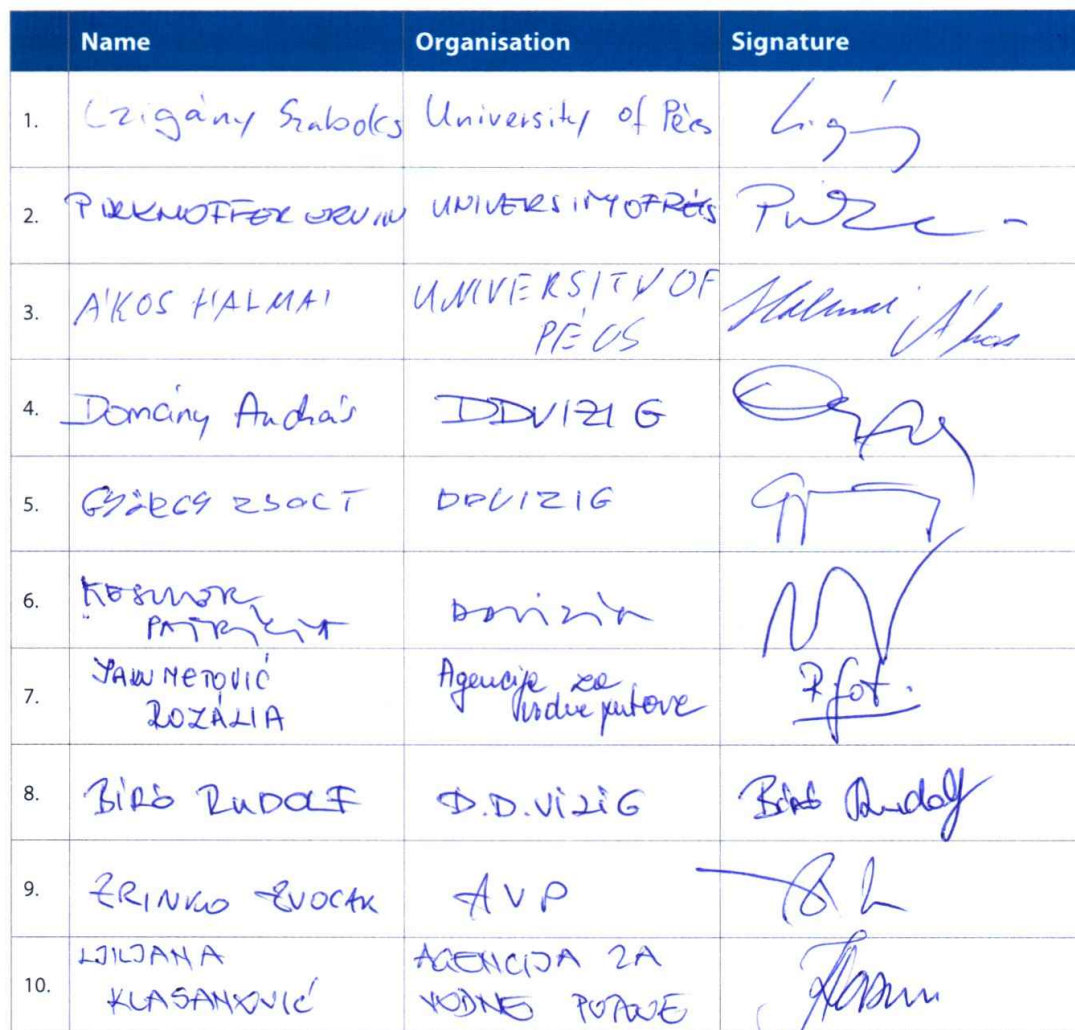 Name Organisation Signature
1. Czigány Szabolcs University of Pécs
2. PIRKHOFFER ERVIN UNIVERSITY OF PÉCS
3. ÁKOS HALMAI UNIVERSITY OF PÉCS Halmai Ákos
4. Domány András DDVIZIG
5. GYÖRGY ZSOLT DDVIZIG
6. PATRÍCIA
7. ROZÁLIA Agencija za vodne putove
8. BÍRÓ RUDOLF D.D.VIZIG Bíró Rudolf
9. ZRINKO ZVOCAK AVP
10. LJILJANA KLASANOVIĆ AGENCIJA ZA VODNE PUTOVE